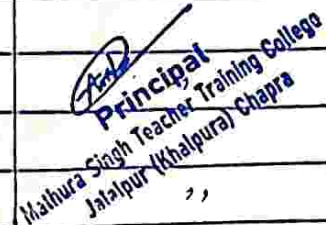 Principal
Mathura Singh Teacher Training College
Jalalpur (Khalpura) Chapra
,,